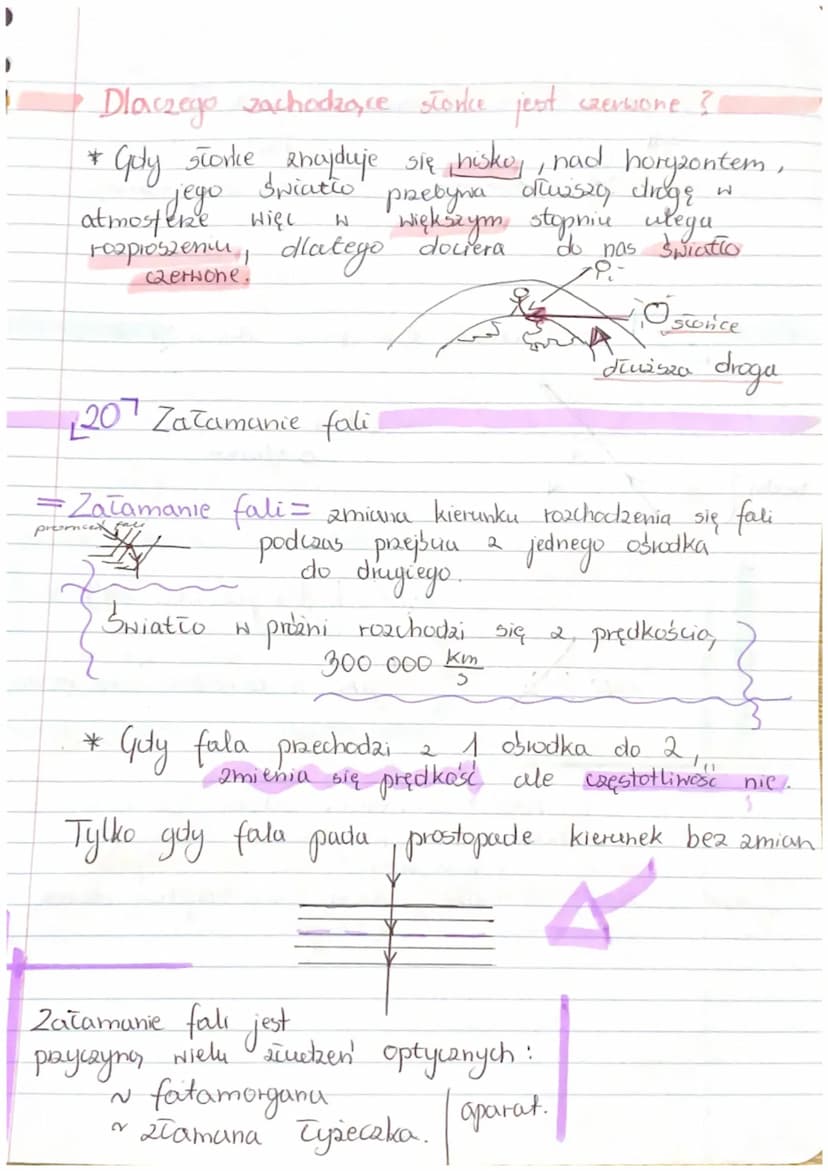 Dlaczego zachodzące słońce jest czerwone ?
* Gdy słońce znajduje się nisko, nad horyzontem,
jego światło przebywa dłuższą drogę w
atmosferze więc w większym stopniu ulega
rozproszeniu, dlatego dociera do nas światło
czerwone.
słońce
dłuższa droga
20 Załamanie fali
= Załamanie fali = zmiana kierunku rozchodzenia się fali
promień fali
podczas przejścia z jednego ośrodka
do drugiego.
Światło w próżni rozchodzi się z prędkością
300 000 km/s
* Gdy fala przechodzi z 1 ośrodka do 2,
zmienia się prędkość ale częstotliwość nie.
Tylko gdy fala pada prostopade kierunek bez zmian
Załamanie fali jest
przyczyną wielu złudzeń optycznych :
~ fatamorgana
aparat.
~ złamana łyżeczka.